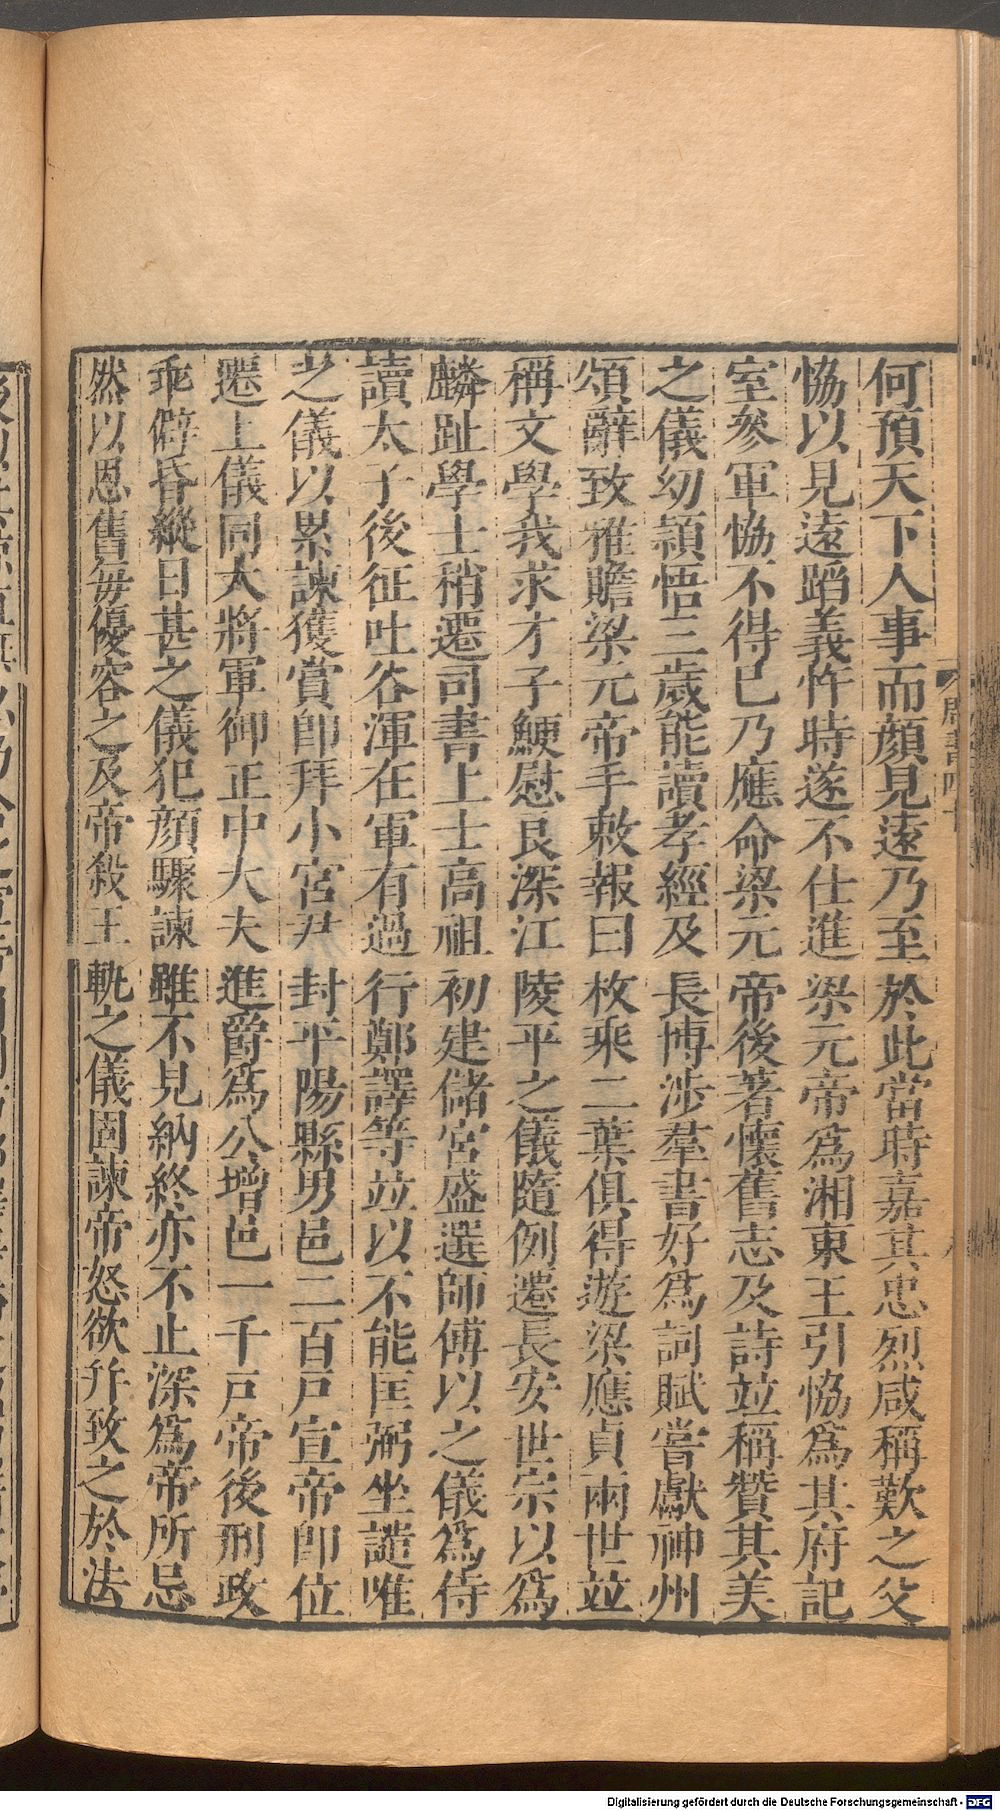 何預天下人事而顏見遠乃至於此當時嘉其忠烈咸稱歎之父
恊以見遠蹈義忤時遂不仕進梁元帝爲湘東王引恊爲其府記
室參軍恊不得已乃應命梁元帝後著懷舊志及詩竝稱贊其美
之儀幼穎悟三歲能讀孝經及長博涉羣書好爲詞賦嘗獻神州
頌辭致雅贍梁元帝手敕報曰枚乘二葉俱得遊梁應貞兩世竝
稱文學我求才子鯁慰良深江陵平之儀隨例遷長安世宗以爲
麟趾學士稍遷司書上士高祖初建儲宮盛選師傅以之儀爲侍
讀太子後征吐谷渾在軍有過行鄭譯等竝以不能匡弼坐譴唯
之儀以累諫獲賞卽拜小宮尹封平陽縣男邑二百戸宣帝卽位
遷上儀同大將軍御正中大夫進爵爲公增邑一千戸帝後刑政
乖僻昏縱日甚之儀犯顏驟諫雖不見納終亦不止深爲帝所忌
然以恩舊每優容之及帝殺王軌之儀固諫帝怒欲幷致之於法
Digitalisierung gefördert durch die Deutsche Forschungsgemeinschaft - DFG